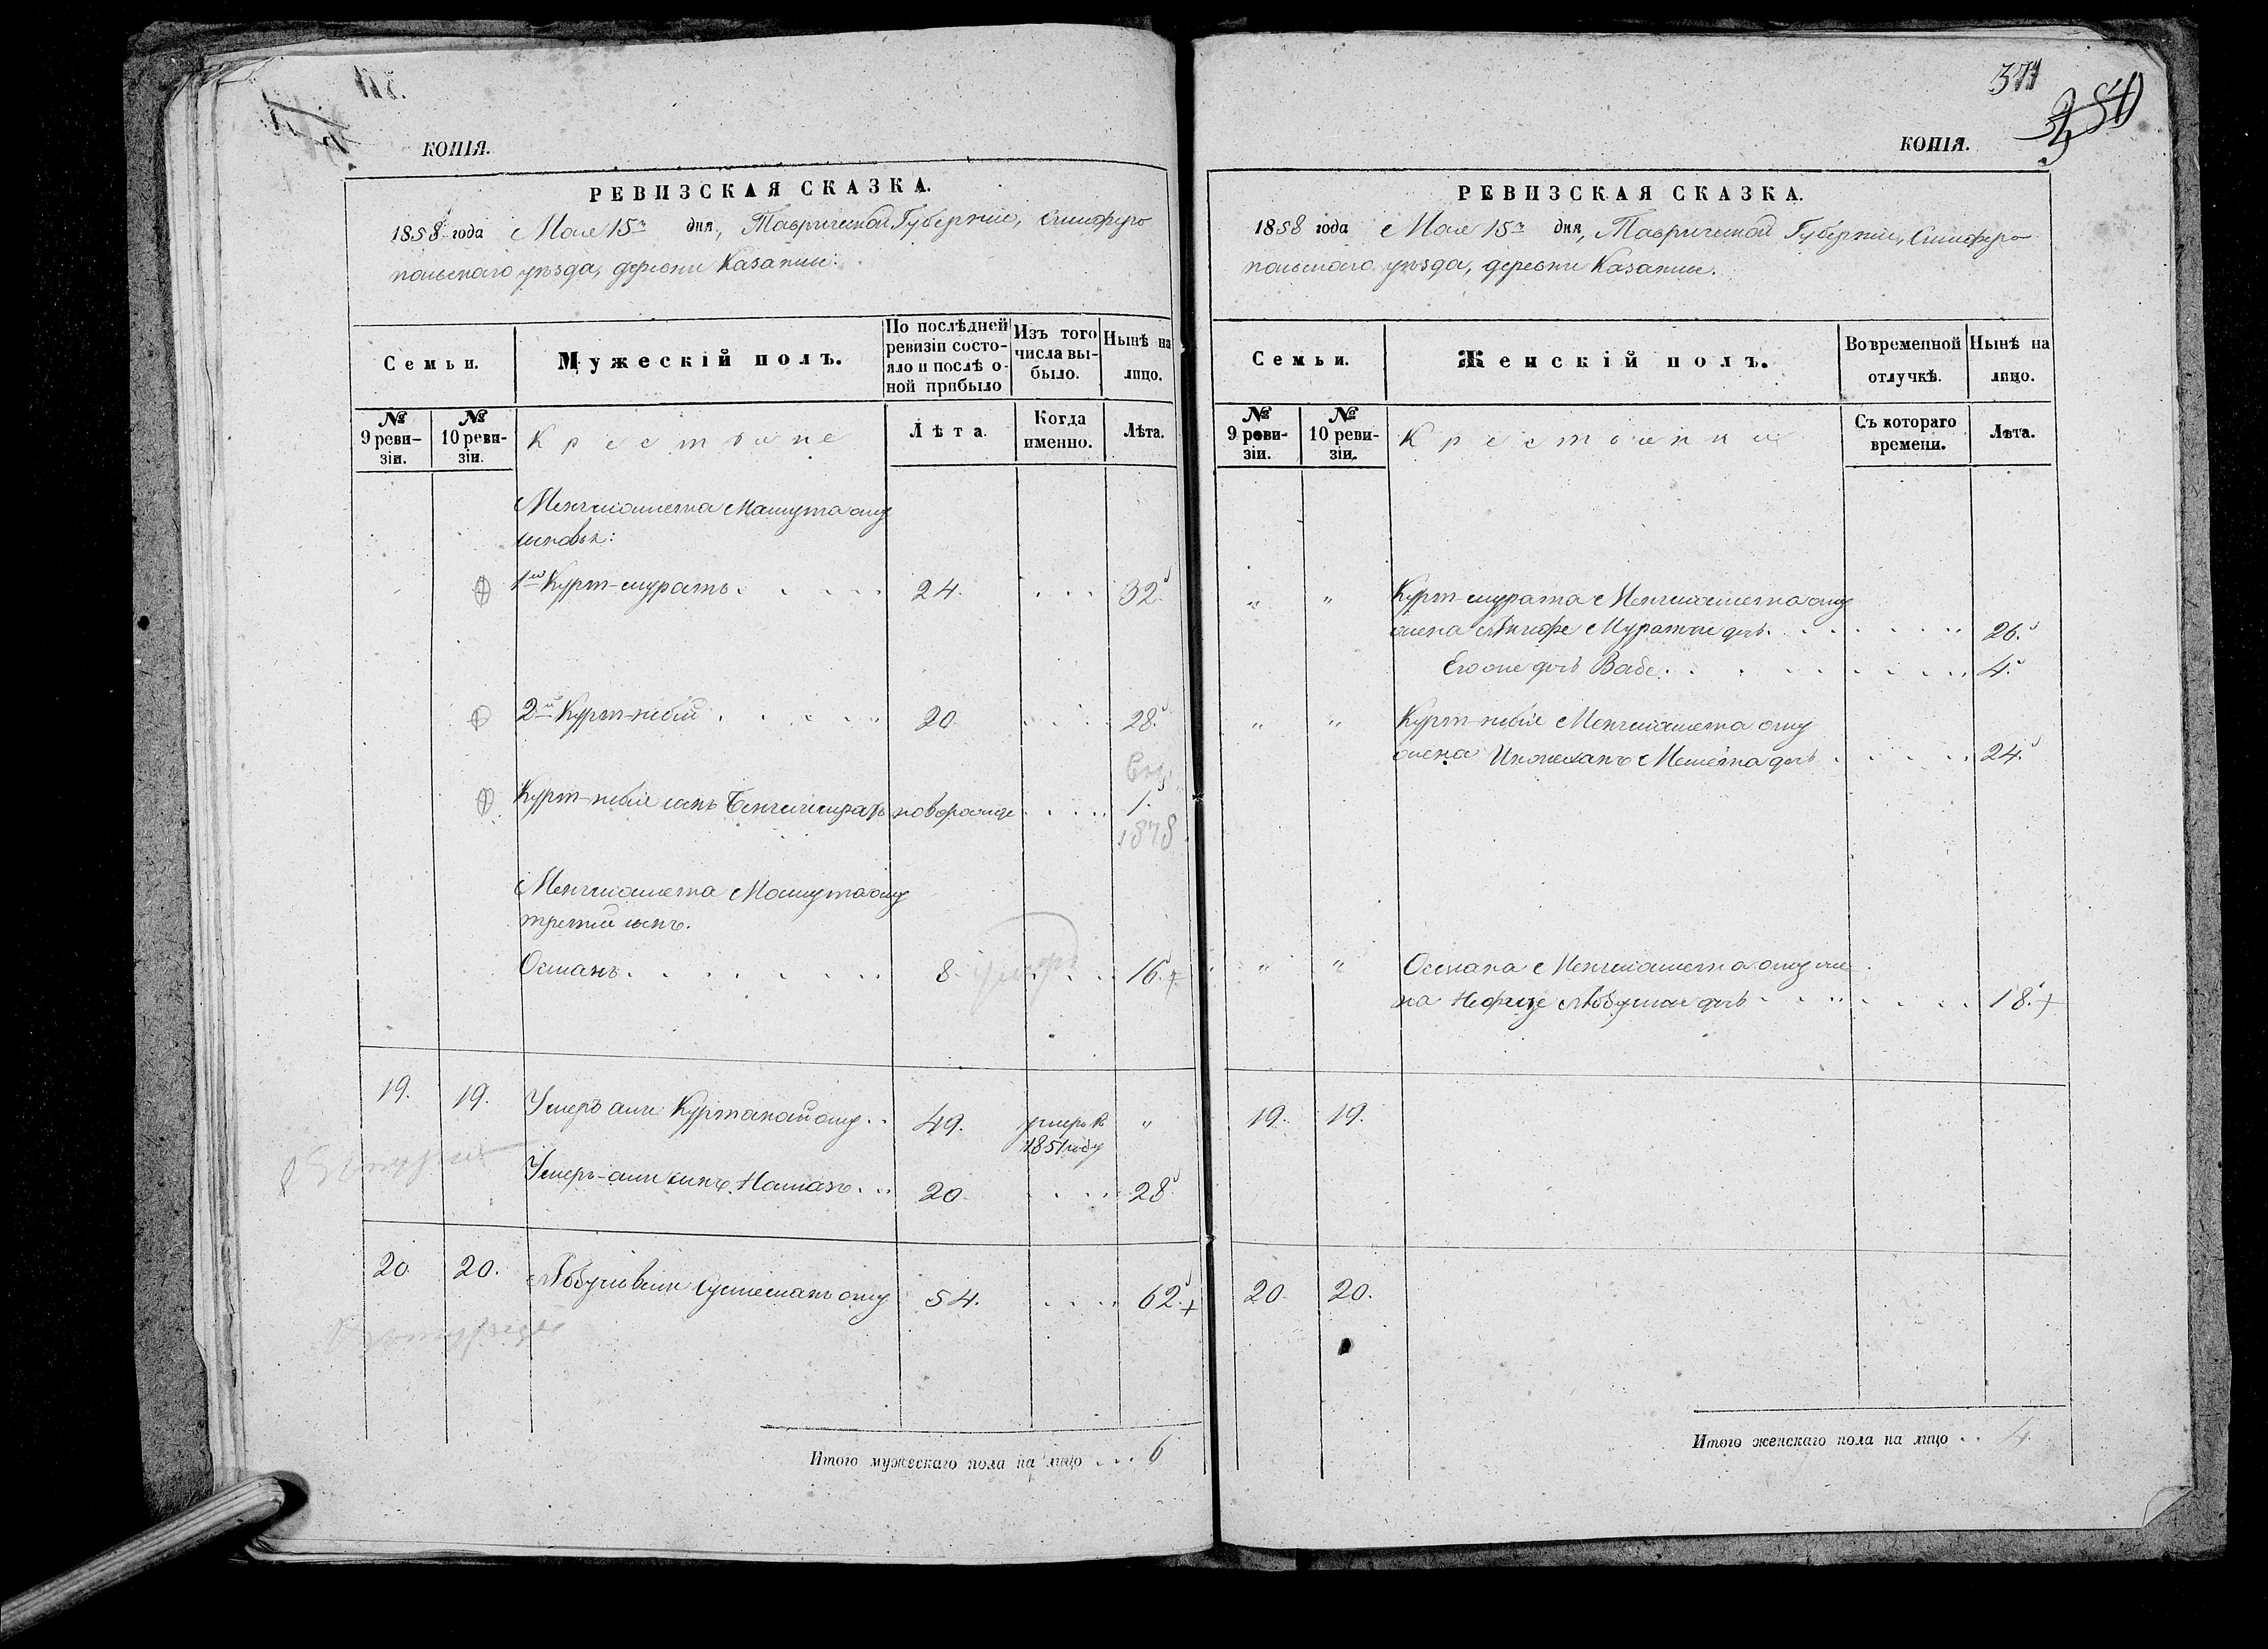 КОПІЯ.
РЕВИЗСКАЯ СКАЗКА.
1858 года Мая 15го дня, Таврической Губерніи, Симферо
польскаго уѣзда, деревни Казанлы.
Семьи.
Мужескій полъ.
По послѣдней
ревизіи состо-
яло и послѣ о-
ной прибыло
Изъ того
числа вы-
было.
Нынѣ на
лицо.
№
9 реви-
зіи.
№
10 реви-
зіи.
Крестьяне
Лѣта.
Когда
именно.
Лѣта.
Менглиамета Машута оглу
сыновья:
1й Курт-муратъ 24. 32.
2й Курт-небій 20 28.
Курт-небія сынъ новорожде 1.
1878
Менглиамета Машута оглу
третій сынъ.
Османъ 8. умеръ 16.
19. 19. Умеръ али оглу 49. умеръ въ "
1851 году
Умеръ-али сынъ 20 28
20. 20. оглу 54. 62.
Итого мужескаго пола на лицо . . . 6
371
КОПІЯ.
РЕВИЗСКАЯ СКАЗКА.
1858 года Мая 15го дня, Таврической Губерніи, Симферо
польскаго уѣзда, деревни Казанлы.
Семьи.
Женскій полъ.
Во временной
отлучкѣ.
Нынѣ на
лицо.
№
9 реви-
зіи.
№
10 реви-
зіи.
Крестьянки
Съ котораго
времени.
Лѣта.
" " Курт-мурата Менглиамета оглу
жена Муратши дочь 26.
Его же дочь 4.
" " Курт-небія Менглиамета оглу
жена дочь 24.
" " Османа Менглиамета оглу же
на дочь 18.
19. 19.
20 20.
Итого женскаго пола на лицо . . 4.